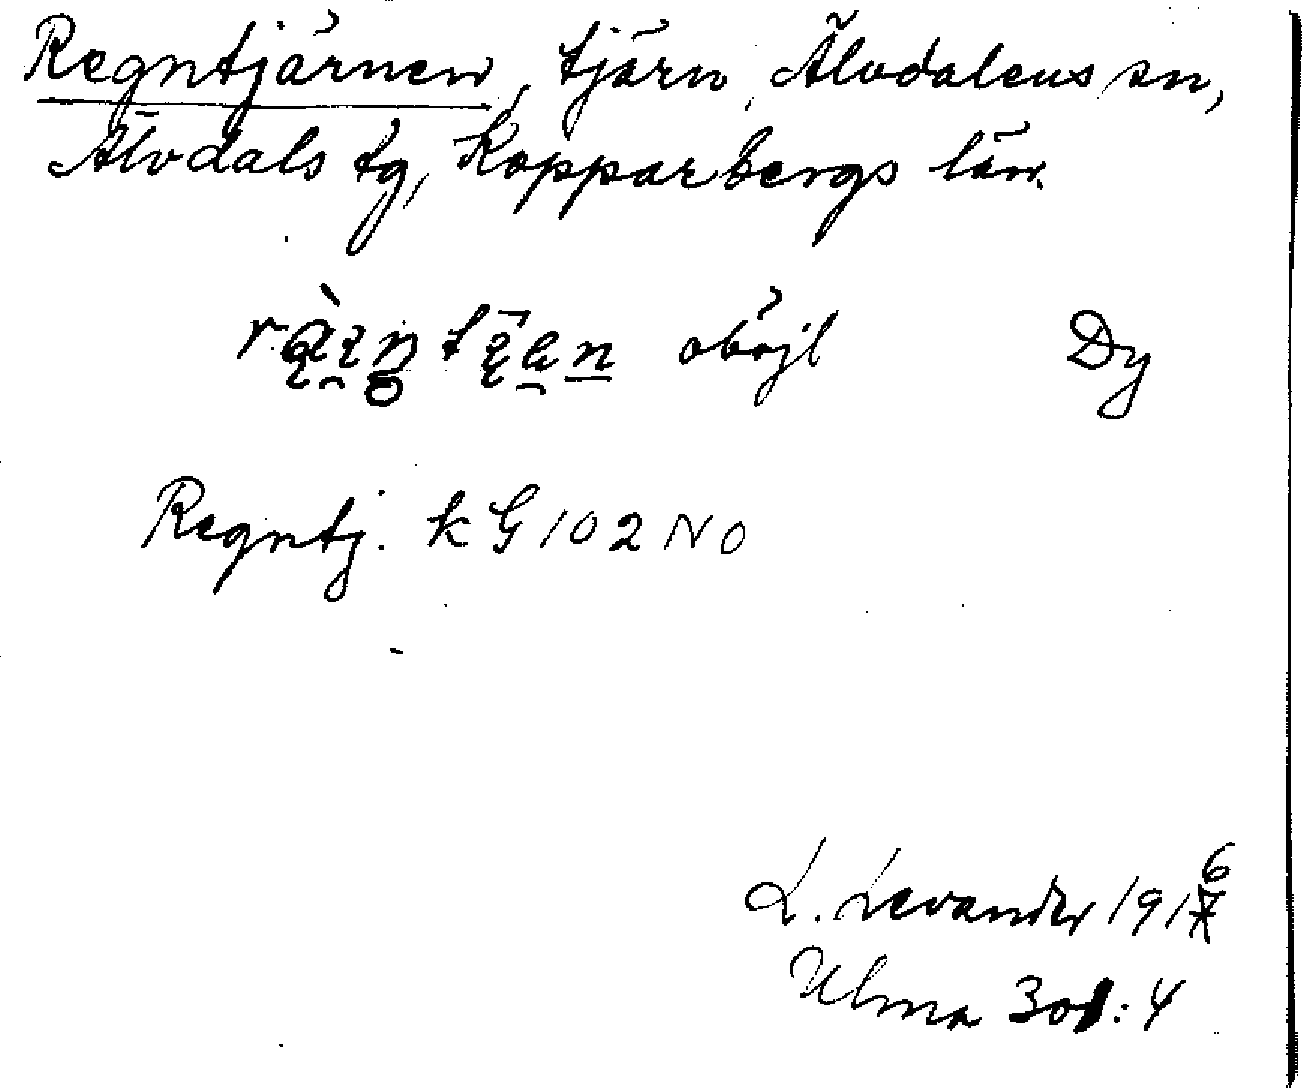 Regntjärnen, tjärn, Älvdalens sn,
Älvdals tg, Kopparbergs län.
oböjl Dy
Regntj. k G 102 NO
L. Levander 1916
Ulma 301:4